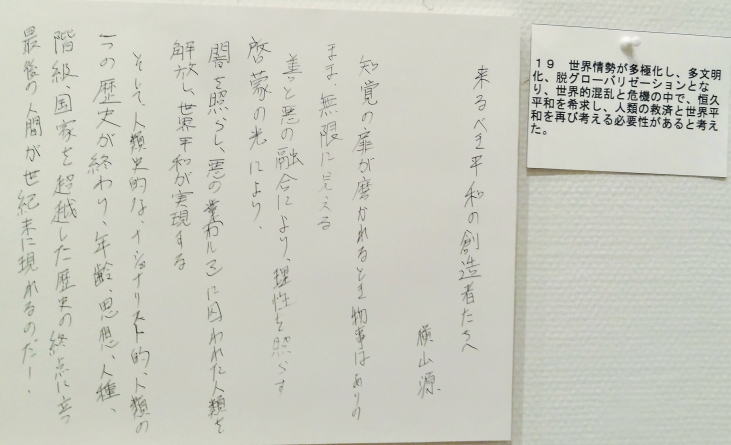 来るべき平和の創造者たちへ
横山源
知覚の扉が磨かれるとき物事はありの
まま、無限に見える
善と悪の融合により、理性を照らす
啓蒙の光により、
闇を照らし、悪の業(カルマ)に囚われた人類を
解放し、世界平和が実現する
そして、人類史的な、ナショナリスト的、人類の
一つの歴史が終わり、年齢、思想、人種、
階級、国家を超越した歴史の終点に立つ
最後の人間が世紀末に現れるのだ!
19 世界情勢が多極化し、多文明
化、脱グローバリゼーションとな
り、世界的混乱と危機の中で、恒久
平和を希求し、人類の救済と世界平
和を再び考える必要性があると考え
た。